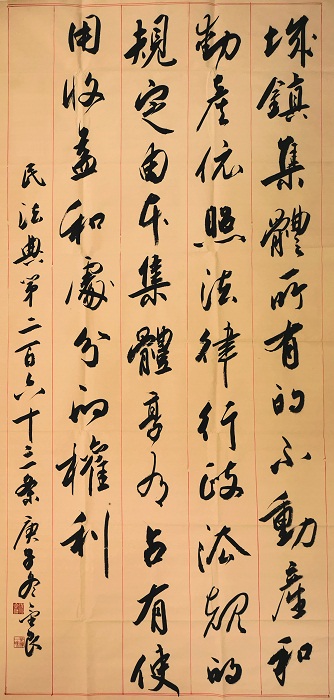 城鎮集體所有的不動產和
動產依照法律行政法規的
規定由本集體享有占有使
用收益和處分的權利
民法典第二百六十三条庚子冬